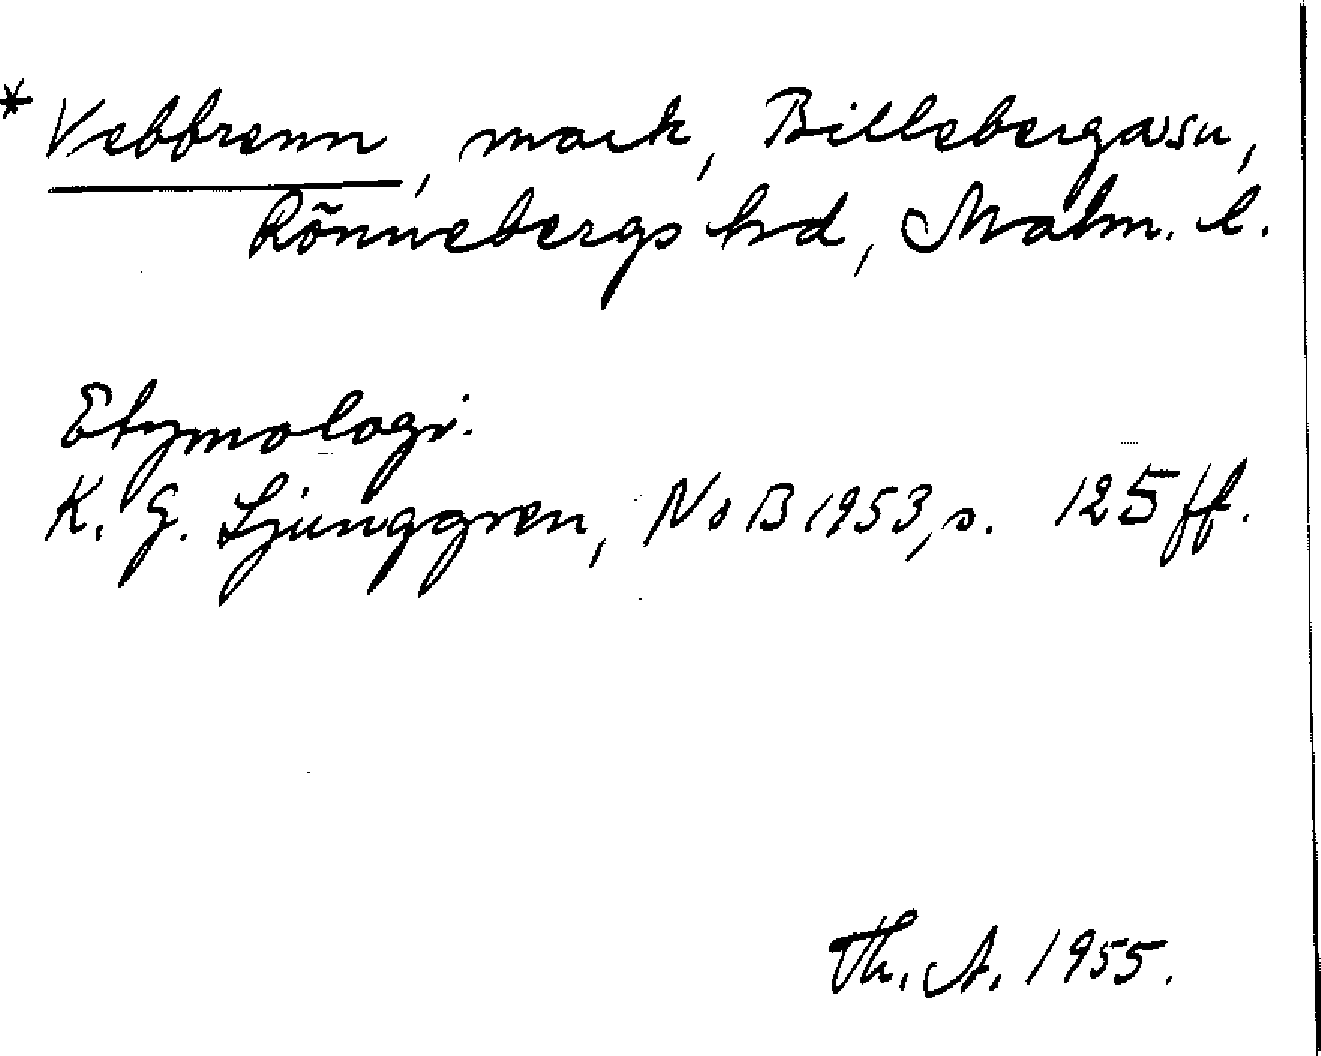 * Vebbrenn, mark, Billeberga sn,
Rönnebergs hd, Malm. l.
Etymologi.
K. G. Ljunggren, NoB 1953, s. 125 ff.
Th. A. 1955.